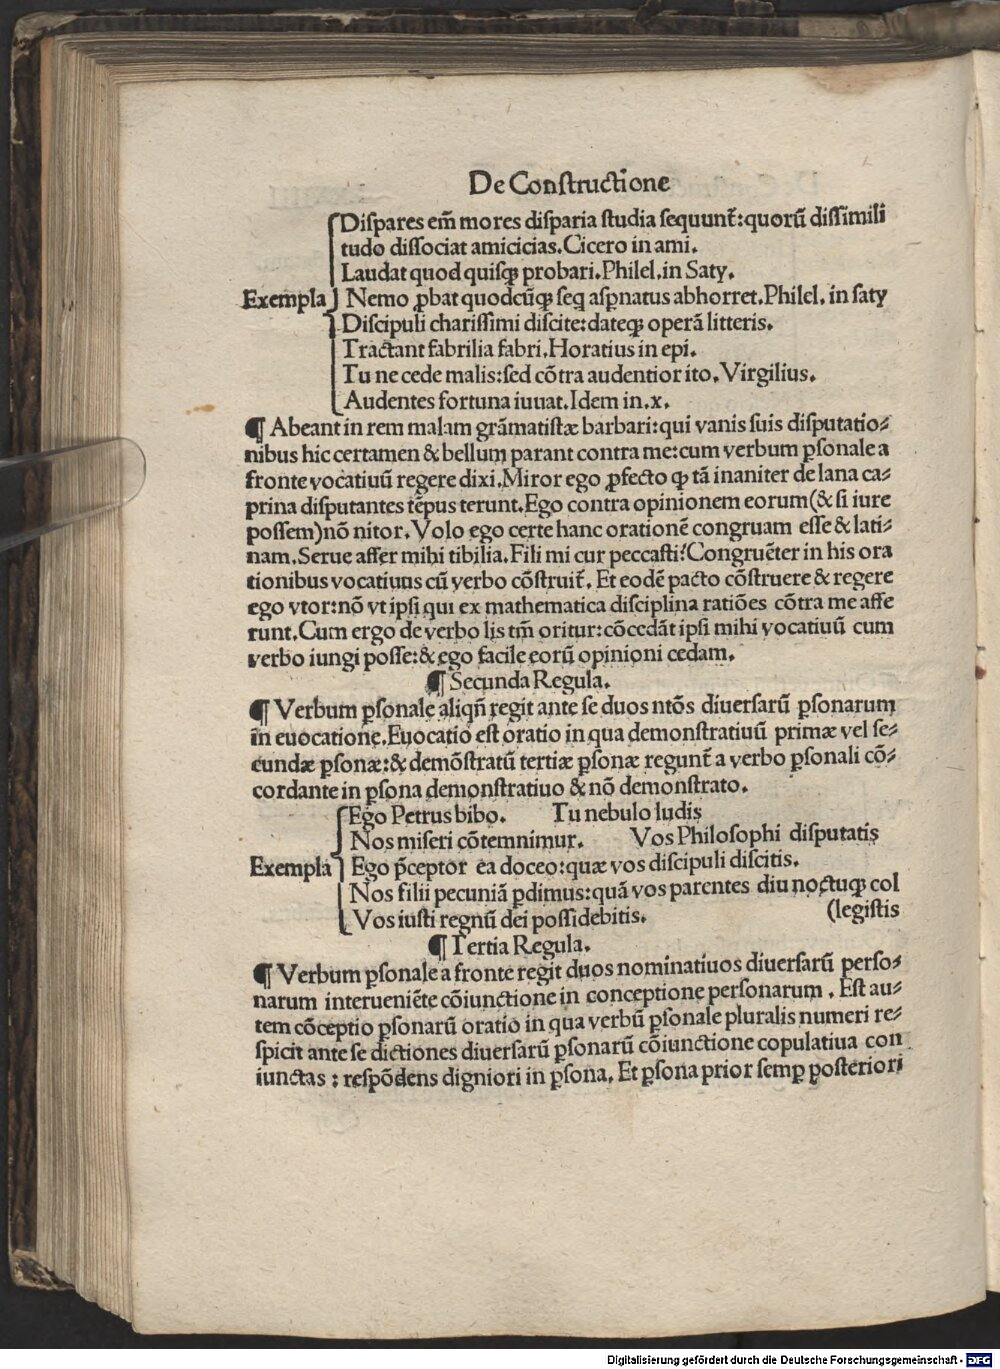 De Constructione
Dispares em̃ mores disparia studia sequunt̃: quorũ dissimili
tudo dissociat amicicias. Cicero in ami.
Laudat quod quisqꝫ probari. Philel. in Saty.
Exempla Nemo ꝓbat quodcũqꝫ seq̃ asꝑnatus abhorret. Philel. in saty
Discipuli charissimi discite: dateqꝫ operã litteris.
Tractant fabrilia fabri. Horatius in epi.
Tu ne cede malis: sed cõtra audentior ito. Virgilius.
Audentes fortuna iuuat. Idem in .x.
¶ Abeant in rem malam grãmatistæ barbari: qui vanis suis disputatio⸗
nibus hic certamen & bellum parant contra me: cum verbum ꝑsonale a
fronte vocatiuũ regere dixi. Miror ego ꝓfecto ꝙ tã inaniter de lana ca⸗
prina disputantes tẽpus terunt. Ego contra opinionem eorum (& si iure
possem) nõ nitor. Volo ego certe hanc orationẽ congruam esse & lati⸗
nam. Serue affer mihi tibilia. Fili mi cur peccasti? Congruẽter in his ora
tionibus vocatiuus cũ verbo cõstruit̃. Et eodẽ pacto cõstruere & regere
ego vtor: nõ vt ipsi qui ex mathematica disciplina ratiões cõtra me affe
runt. Cum ergo de verbo lis tm̃ oritur: cõcedãt ipsi mihi vocatiuũ cum
verbo iungi posse: & ego facile eorũ opinioni cedam.
¶ Secunda Regula.
¶ Verbum ꝑsonale aliqñ regit ante se duos ntõs diuersarũ ꝑsonarum
in euocatione. Euocatio est oratio in qua demonstratiuũ primæ vel se⸗
cundæ ꝑsonæ: & demõstratũ tertiæ ꝑsonæ regunt̃ a verbo ꝑsonali cõ⸗
cordante in ꝑsona demonstratiuo & nõ demonstrato.
Ego Petrus bibo. Tu nebulo ludis
Nos miseri cõtemnimur. Vos Philosophi disputatis
Exempla Ego p̃ceptor ea doceo: quæ vos discipuli discitis.
Nos filii pecuniã ꝑdimus: quã vos parentes diu noctuqꝫ col
Vos iusti regnũ dei possidebitis. (legistis
¶ Tertia Regula.
¶ Verbum ꝑsonale a fronte regit duos nominatiuos diuersarũ perso⸗
narum interueniẽte cõiunctione in conceptione personarum. Est au⸗
tem cõceptio ꝑsonarũ oratio in qua verbũ ꝑsonale pluralis numeri re⸗
spicit ante se dictiones diuersarũ ꝑsonarũ cõiunctione copulatiua con
iunctas: respõdens digniori in ꝑsona. Et ꝑsona prior semꝑ posteriori
Digitalisierung gefördert durch die Deutsche Forschungsgemeinschaft - DFG